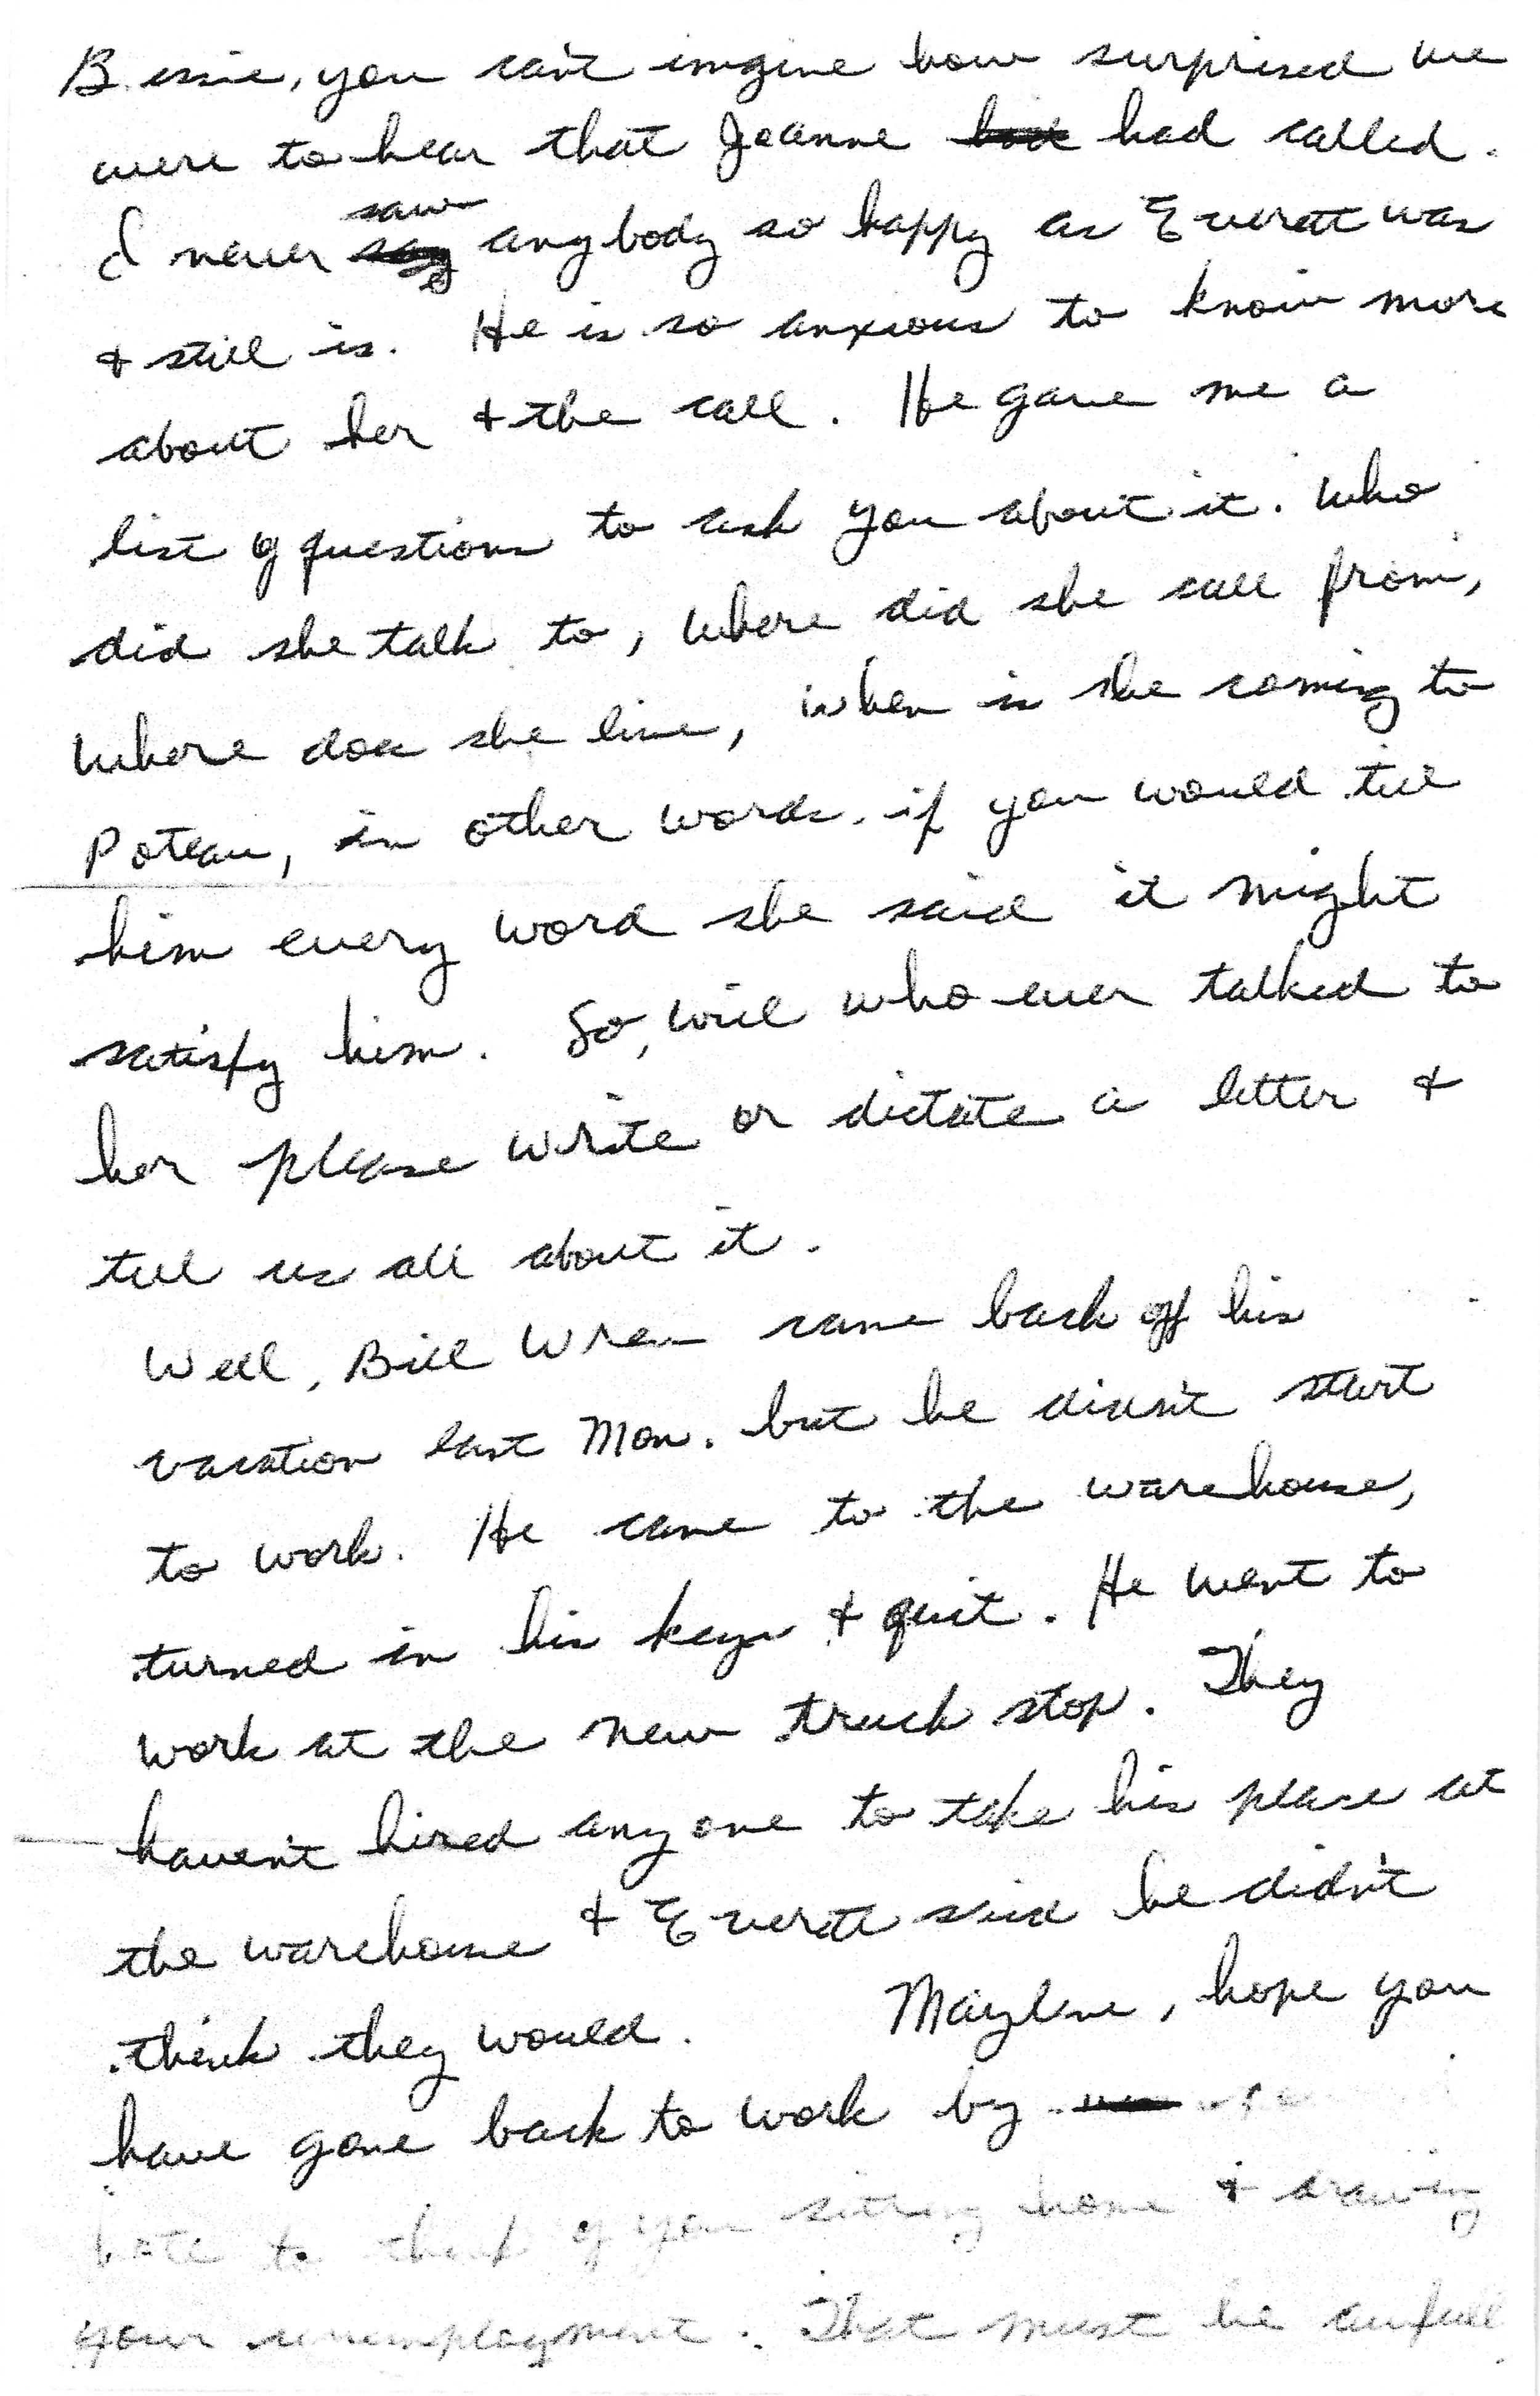 Bessie, you can't imgine how surprised we
were to hear that Joanne had called.
I never saw anybody so happy as Everett was
& still is. He is so anxious to know more
about her & the call. He gave me a
list of questions to ask you about it. Who
did she talk to, where did she call from,
where does she live, when is she coming to
Poteau, in other words, if you would tell
him every word she said it might
satisfy him. So, will who ever talked to
her please write or dictate a letter &
tell us all about it.
Well, Bill Wren came back off his
vacation last Mon. but he didn't start
to work. He came to the warehouse,
turned in his keys & quit. He went to
work at the new truck stop. They
haven't hired anyone to take his place at
the warehouse & Everett said he didn't
think they would. Maylene, hope you
have gone back to work by
hate to think of you sitting home & drawing
your unemployment. That must be awfull